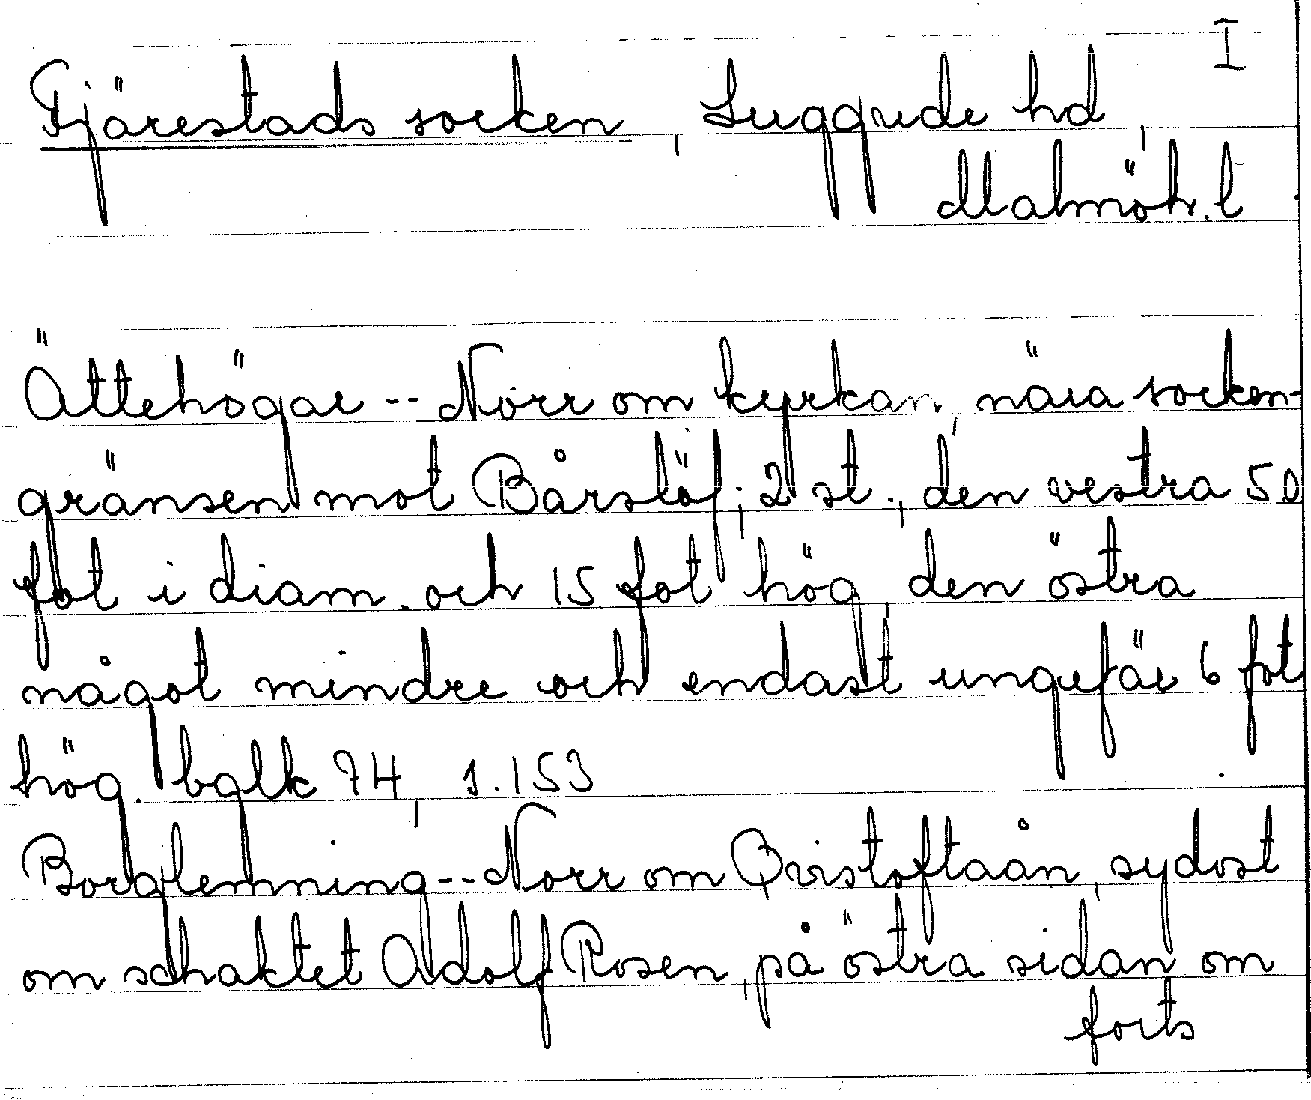 I
Fjärestads socken, Luggude hd,
Malmöh. l
Ättehögar -- Norr om kyrkan, nära socken-
gränsen mot Bårslöf; 2 st., den vestra 50
fot i diam. och 15 fot hög, den östra
något mindre och endast ungefär 6 fot
hög. bglk 74, s. 153
Borglemning -- Norr om Qvistoftaån, sydost
om schaktet Adolf Rosen, på östra sidan om
forts